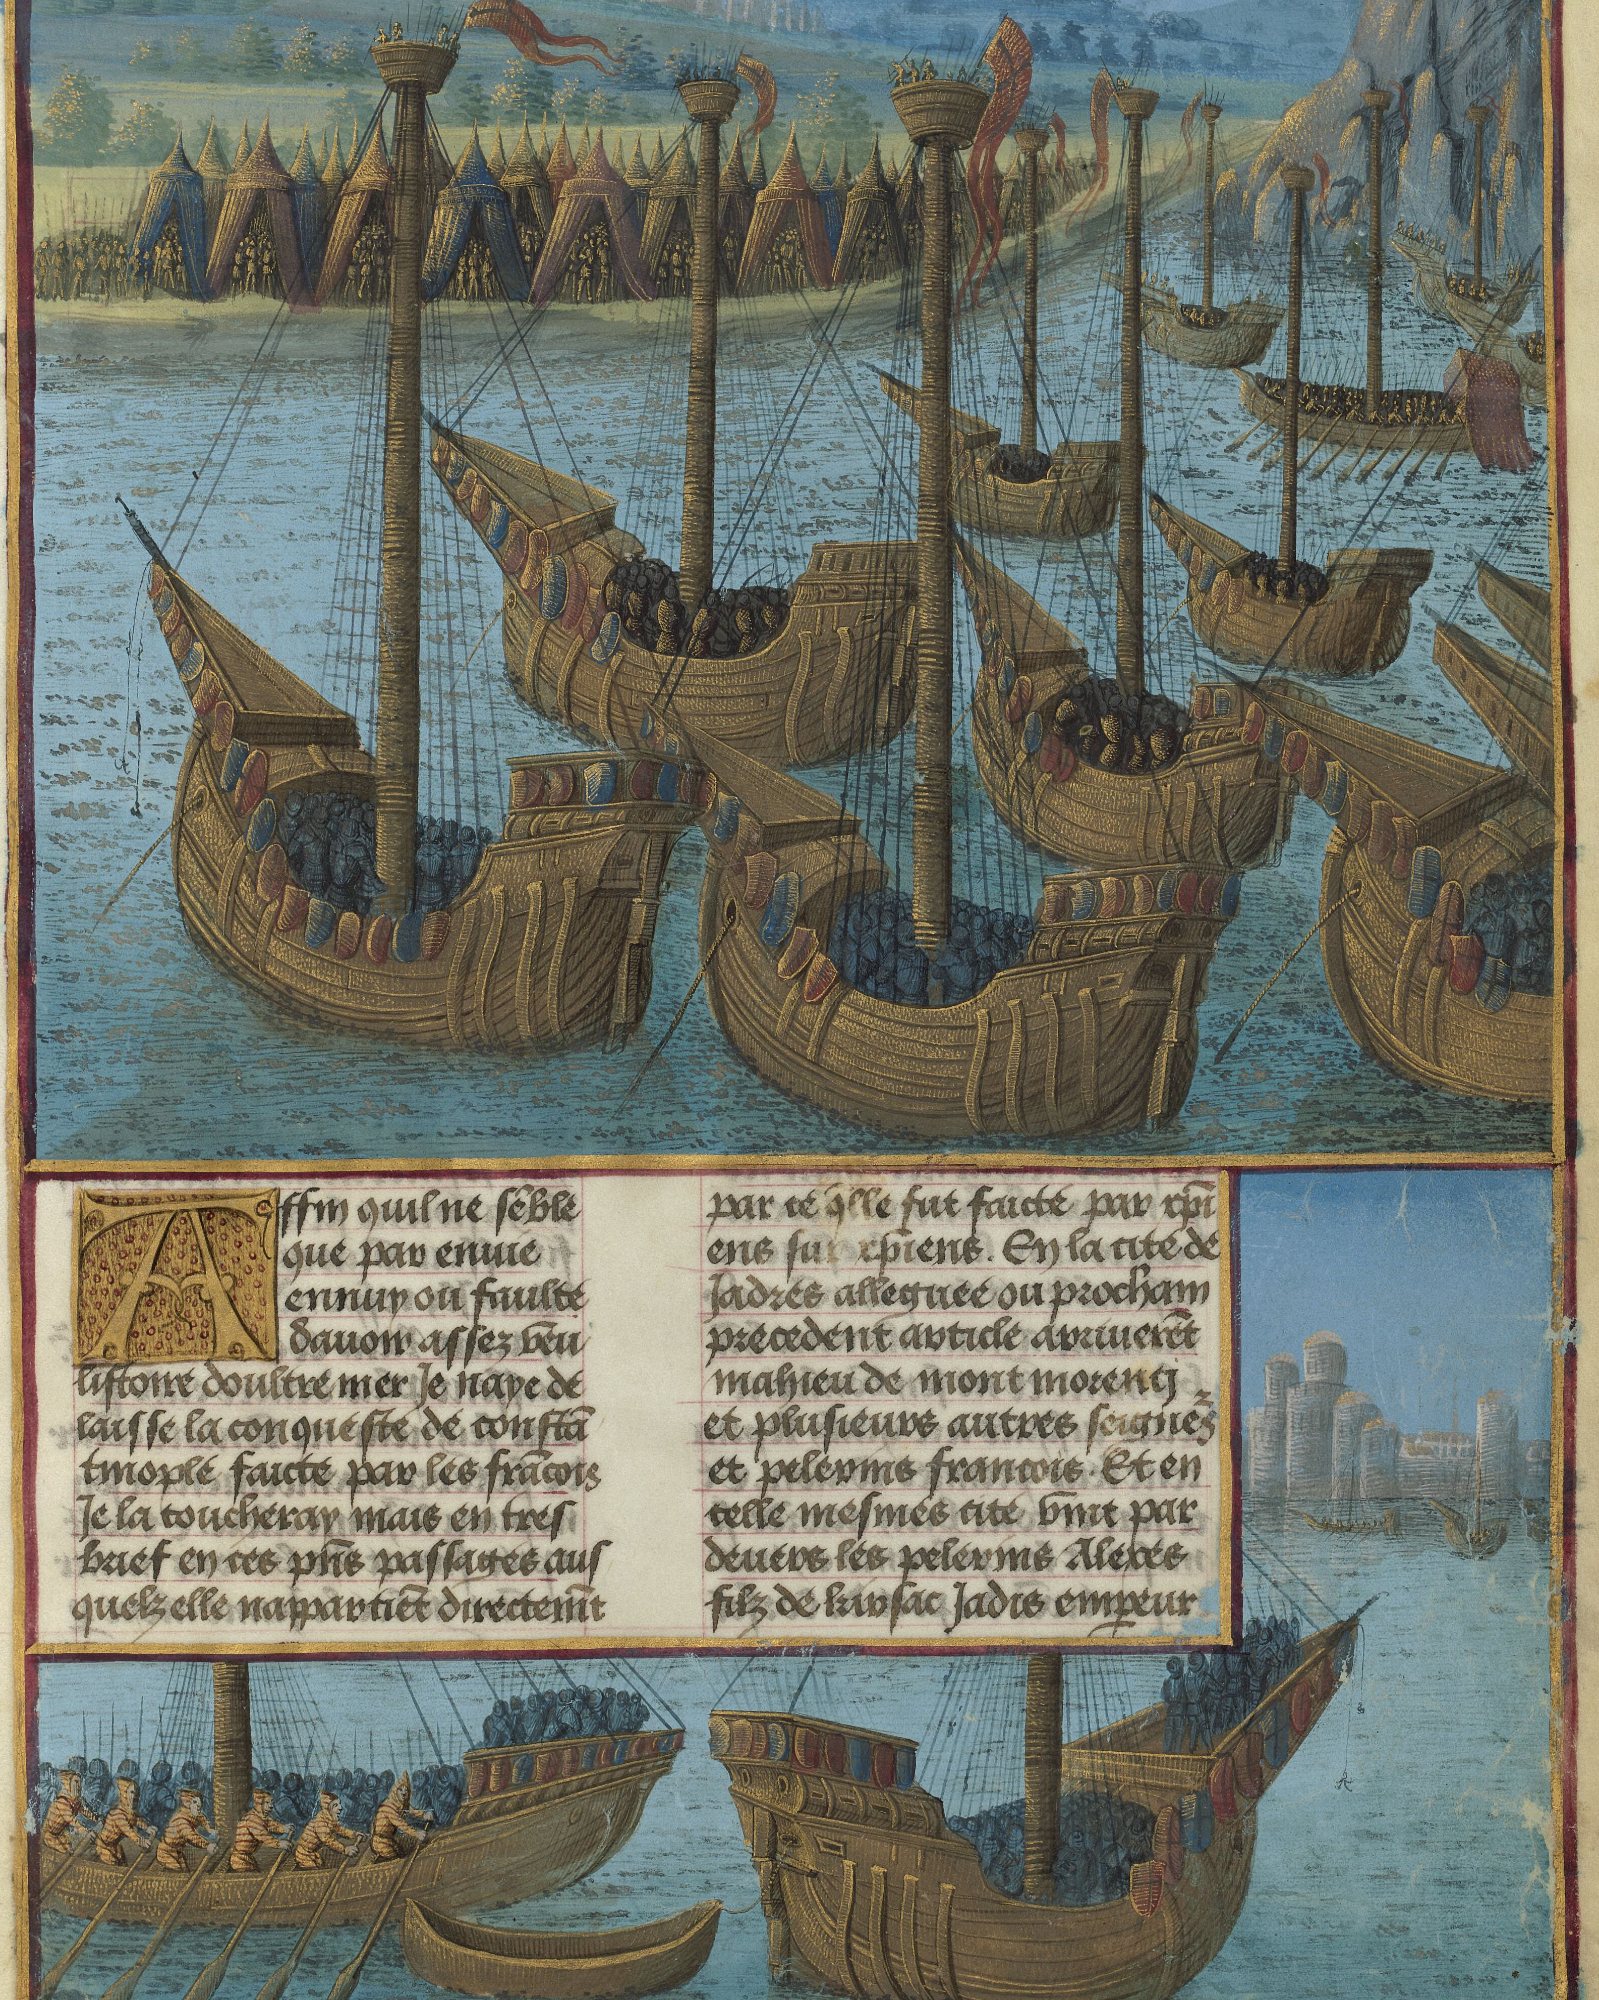 Affin quil ne sēble
que par enuie
ennuy ou faulte
dauoir assez veu
listoire doultre mer Je naye de
laisse la conqueste de constā
tinople faicte par les frācois
Je la toucheray mais en tres
brief en ces pn̄s passages aus
quelz elle nappartiēt directemt̄
par ce q̄lle fut faicte par xp̄i
ens sur xp̄iens. En la cite de
Jadres alleguee ou prochain
precedent article arriuerēt
mahieu de mont morencj
et plusieurs autres seigne͛z
et pelerins francois. Et en
celle mesmes cite vint par
deuers les pelerins Alexes
filz de kirsac Jadis empeur